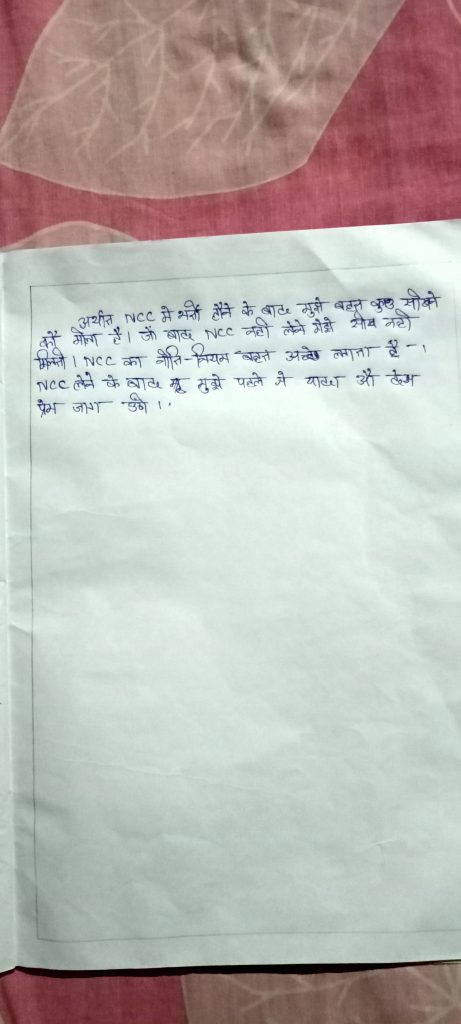 अर्थात NCC मे भर्ती होने के बाद मुझे बहुत कुछ सीखने
को मीला है। जो बाद NCC नही लेने सीख नही
मिलती। NCC का नीति-नियम बहुत अच्छे लगता है -।
NCC लेने के बाद मुझे पहले से यादा औ देश
प्रेम जाग उठी।.